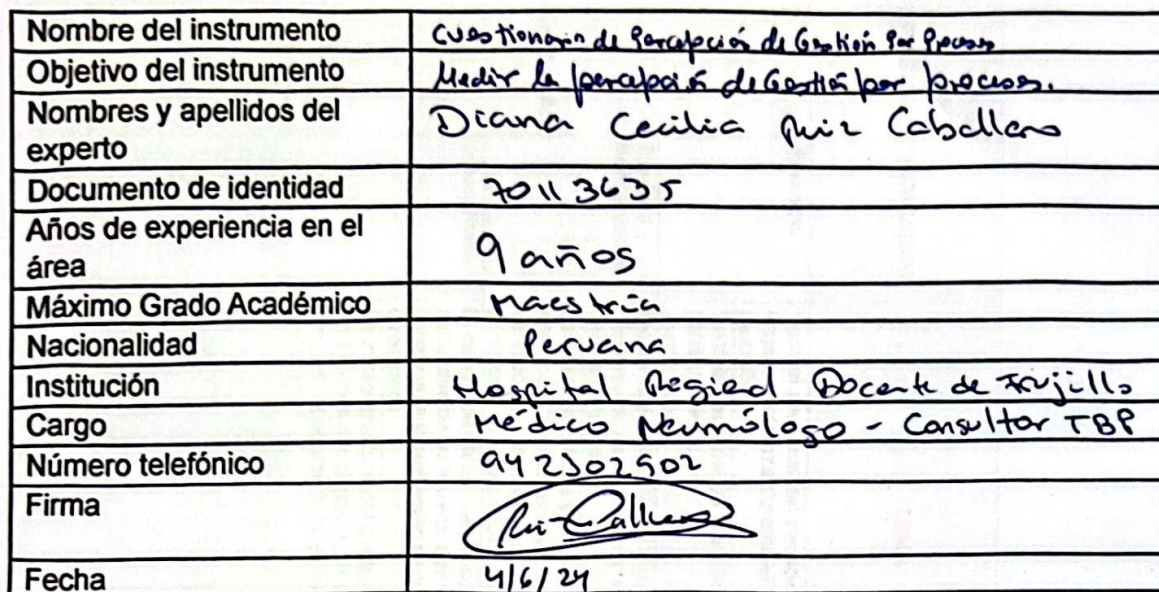 Nombre del instrumento Cuestionario de Percepción de Gestión Por Procesos
Objetivo del instrumento Medir la percepción de Gestión por procesos.
Nombres y apellidos del
experto Diana Cecilia Ruiz Caballero
Documento de identidad 70113635
Años de experiencia en el
área 9 años
Máximo Grado Académico Maestría
Nacionalidad Peruana
Institución Hospital Regional Docente de Trujillo
Cargo Médico Neumólogo - Consultor TBP
Número telefónico 942302502
Firma
Fecha 4/6/24